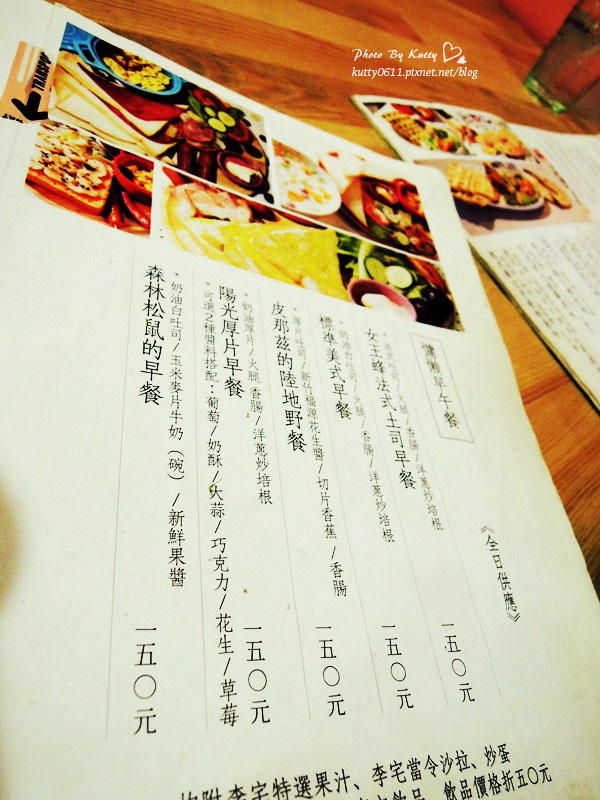 Photo By Kutty
kutty0611.pixnet.net/blog
TRANSPOR
慵懶早午餐
《全日供應》
女王蜂法式土司早餐
法式土司/火腿/香腸/洋蔥炒培根
一五〇元
標準美式早餐
奶油白吐司/火腿/香腸/洋蔥炒培根
一五〇元
皮那茲的陸地野餐
厚片吐司/新竹福源花生醬/切片香蕉/香腸
一五〇元
陽光厚片早餐
奶油厚片/火腿/香腸/洋蔥炒培根
可選2種醬料搭配：葡萄/奶酥/大蒜/巧克力/花生/草莓
一五〇元
森林松鼠的早餐
奶油白吐司/玉米麥片牛奶（碗）/新鮮果醬
一五〇元
均附李宅特選果汁、李宅當令沙拉、炒蛋
飲品價格折五〇元